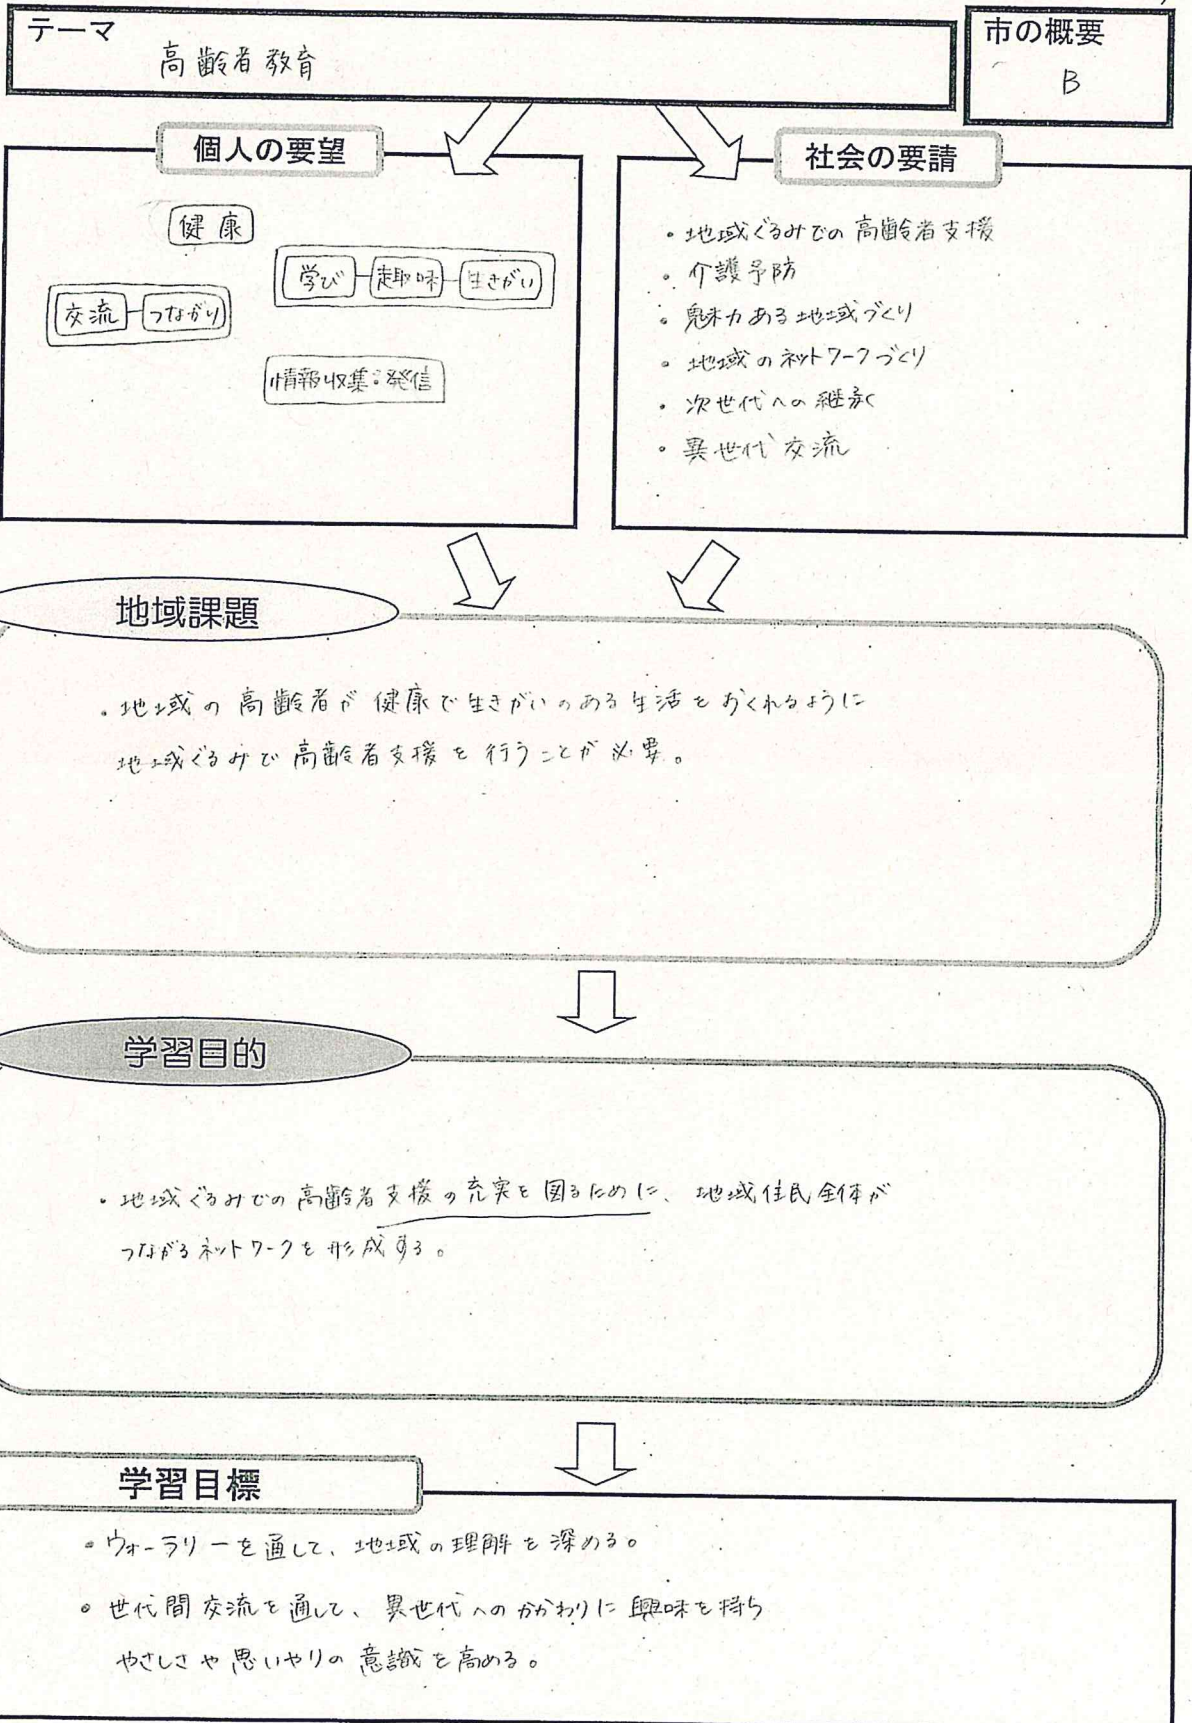 テーマ
高齢者教育
市の概要
B
個人の要望
健康
学び 趣味 生きがい
交流 つながり
情報収集・発信
社会の要請
・地域ぐるみでの高齢者支援
・介護予防
・魅力ある地域づくり
・地域のネットワークづくり
・次世代への継承
・異世代交流
地域課題
・地域の高齢者が健康で生きがいのある生活をおくれるように
地域ぐるみで高齢者支援を行うことが必要。
学習目的
・地域ぐるみでの高齢者支援の充実を図るために、地域住民全体が
つながるネットワークを形成する。
学習目標
・ウォーラリーを通して、地域の理解を深める。
・世代間交流を通して、異世代へのかかわりに興味を持ち
やさしさや思いやりの意識を高める。